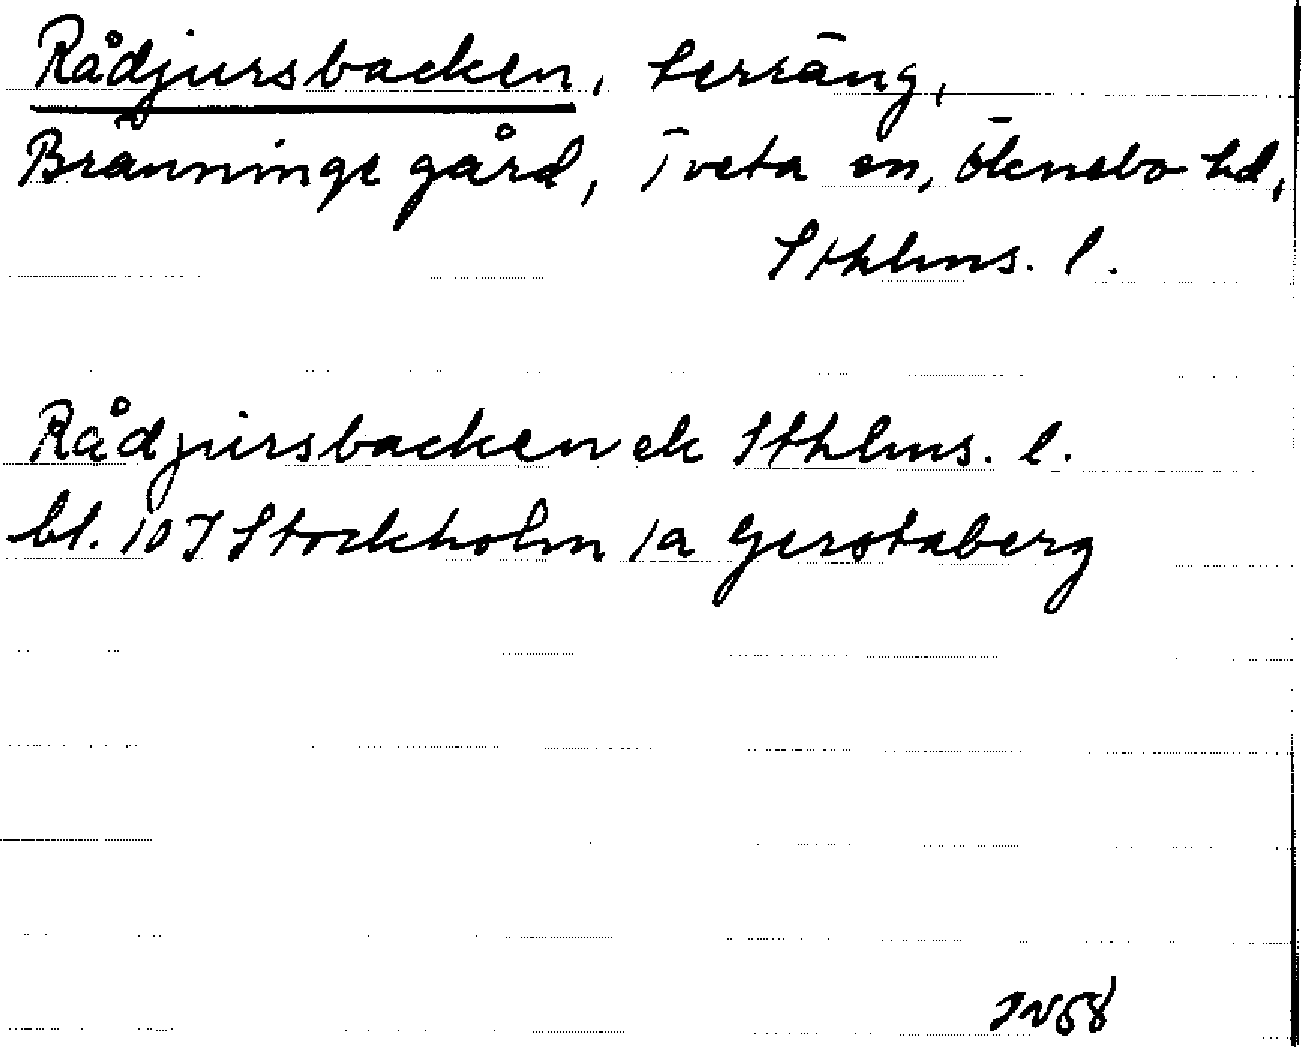 Rådjursbacken, terräng,
Bränninge gård, Tveta sn, Öknebo hd,
Sthlms. l.
Rådjursbacken ek Sthlms. l.
bl. 10 I Stockholm 1a Gerstaberg